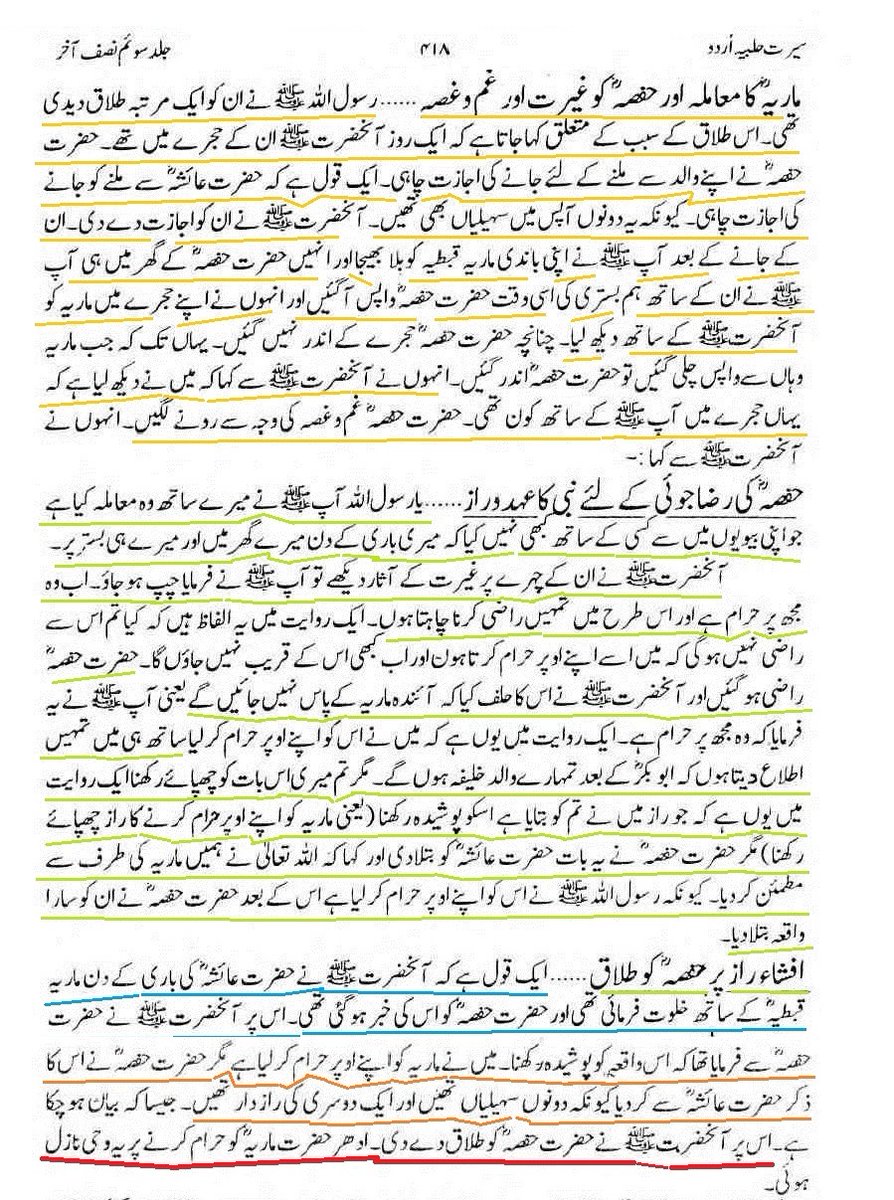 سیرت حلبیہ اُردو ۴۱۸ جلد سوئم نصف آخر
ماریہؓ کا معاملہ اور حفصہؓ کو غیرت اور غم و غصہ ...... رسول اللہ ﷺ نے ان کو ایک مرتبہ طلاق دیدی
تھی۔ اس طلاق کے سبب کے متعلق کہا جاتا ہے کہ ایک روز آنحضرت ﷺ ان کے حجرے میں تھے۔ حضرت
حفصہؓ نے اپنے والد سے ملنے کے لئے جانے کی اجازت چاہی۔ ایک قول ہے کہ حضرت عائشہؓ سے ملنے کو جانے
کی اجازت چاہی۔ کیونکہ یہ دونوں آپس میں سہیلیاں بھی تھیں۔ آنحضرت ﷺ نے ان کو اجازت دے دی۔ ان
کے جانے کے بعد آپ ﷺ نے اپنی باندی ماریہ قبطیہ کو بلا بھیجا اور انہیں حضرت حفصہؓ کے گھر میں ہی آپ
ﷺ نے ان کے ساتھ ہم بستری کی اسی وقت حضرت حفصہؓ واپس آگئیں اور انہوں نے اپنے حجرے میں ماریہ کو
آنحضرت ﷺ کے ساتھ دیکھ لیا۔ چنانچہ حضرت حفصہؓ حجرے کے اندر نہیں گئیں۔ یہاں تک کہ جب ماریہ
وہاں سے واپس چلی گئیں تو حضرت حفصہؓ اندر گئیں۔ انہوں نے آنحضرت ﷺ سے کہا کہ میں نے دیکھ لیا ہے کہ
یہاں حجرے میں آپ ﷺ کے ساتھ کون تھی۔ حضرت حفصہؓ غم و غصہ کی وجہ سے رونے لگیں۔ انہوں نے
آنحضرت ﷺ سے کہا :-
حفصہؓ کی رضا جوئی کے لئے نبی کا عہد و راز ...... یا رسول اللہ آپ ﷺ نے میرے ساتھ وہ معاملہ کیا ہے
جو اپنی بیویوں میں سے کسی کے ساتھ کبھی نہیں کیا کہ میری باری کے دن میرے گھر میں اور میرے ہی بستر پر۔
آنحضرت ﷺ نے ان کے چہرے پر غیرت کے آثار دیکھے تو آپ ﷺ نے فرمایا چپ ہو جاؤ۔ اب وہ
مجھ پر حرام ہے اور اس طرح میں تمہیں راضی کرنا چاہتا ہوں۔ ایک روایت میں یہ الفاظ ہیں کہ کیا تم اس سے
راضی نہیں ہوگی کہ میں اسے اپنے اوپر حرام کرتا ہون اور اب کبھی اس کے قریب نہیں جاؤں گا۔ حضرت حفصہؓ
راضی ہو گئیں اور آنحضرت ﷺ نے اس کا حلف کیا کہ آئندہ ماریہ کے پاس نہیں جائیں گے یعنی آپ ﷺ نے یہ
فرمایا کہ وہ مجھ پر حرام ہے۔ ایک روایت میں یوں ہے کہ میں نے اس کو اپنے اوپر حرام کر لیا ساتھ ہی میں تمہیں
اطلاع دیتا ہوں کہ ابو بکرؓ کے بعد تمہارے والد خلیفہ ہوں گے۔ مگر تم میری اس بات کو چھپائے رکھنا ایک روایت
میں یوں ہے کہ جو راز میں نے تم کو بتایا ہے اسکو پوشیدہ رکھنا (یعنی ماریہ کو اپنے اوپر حرام کرنے کا راز چھپائے
رکھنا) مگر حضرت حفصہؓ نے یہ بات حضرت عائشہؓ کو بتلا دی اور کہا کہ اللہ تعالیٰ نے ہمیں ماریہ کی طرف سے
مطمئن کر دیا۔ کیونکہ رسول اللہ ﷺ نے اس کو اپنے اوپر حرام کر لیا ہے اس کے بعد حضرت حفصہؓ نے ان کو سارا
واقعہ بتلا دیا۔
افشاء راز پر حفصہؓ کو طلاق ...... ایک قول ہے کہ آنحضرت ﷺ نے حضرت عائشہؓ کی باری کے دن ماریہ
قبطیہؓ کے ساتھ خلوت فرمائی تھی اور حضرت حفصہؓ کو اس کی خبر ہو گئی تھی۔ اس پر آنحضرت ﷺ نے حضرت
حفصہؓ سے فرمایا تھا کہ اس واقعہ کو پوشیدہ رکھنا۔ میں نے ماریہ کو اپنے اوپر حرام کر لیا ہے مگر حضرت حفصہؓ نے اس کا
ذکر حضرت عائشہؓ سے کر دیا کیونکہ دونوں سہیلیاں تھیں اور ایک دوسری کی رازدار تھیں۔ جیسا کہ بیان ہو چکا
ہے۔ اس پر آنحضرت ﷺ نے حضرت حفصہؓ کو طلاق دے دی۔ ادھر حضرت ماریہؓ کو حرام کرنے پر یہ وحی نازل
ہوئی۔